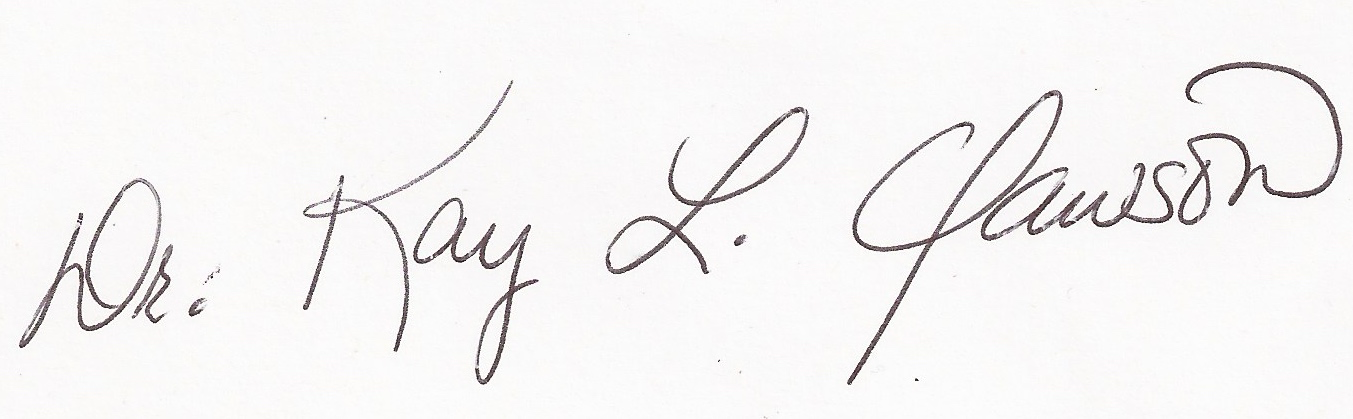 Dr. Kay L. Clawson